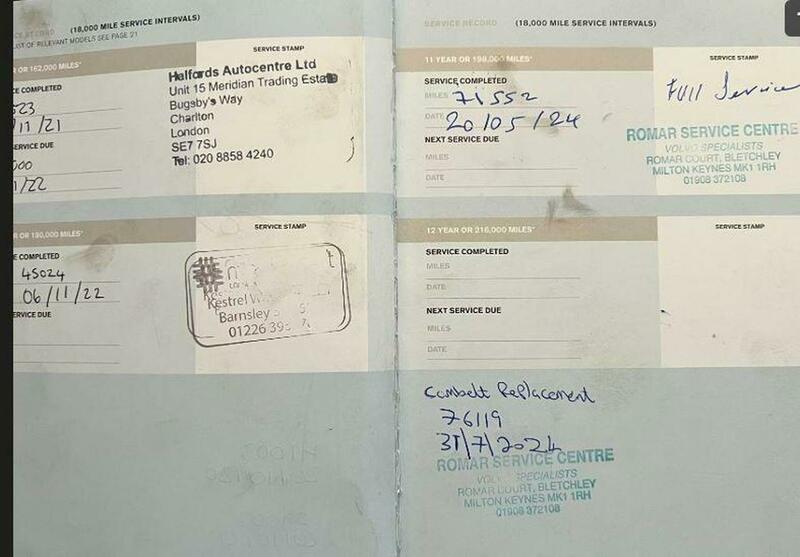 (18,000 MILE SERVICE INTERVALS)
LIST OF RELEVANT MODELS SEE PAGE 21
YEAR OR 162,000 MILES*
SERVICE STAMP
COMPLETED
/11/21
SERVICE DUE
/22
Halfords Autocentre Ltd
Unit 15 Meridian Trading Estate
Bugsby's Way
Charlton
London
SE7 7SJ
Tel: 020 8858 4240
YEAR OR 180,000 MILES*
SERVICE STAMP
COMPLETED
45024
06/11/22
SERVICE DUE
Kestrel
Barnsley
01226
SERVICE RECORD (18,000 MILE SERVICE INTERVALS)
11 YEAR OR 198,000 MILES*
SERVICE STAMP
SERVICE COMPLETED
MILES 71552
DATE 20/05/24
NEXT SERVICE DUE
MILES
DATE
Full Service
ROMAR SERVICE CENTRE
VOLVO SPECIALISTS
ROMAR COURT, BLETCHLEY
MILTON KEYNES MK1 1RH
01908 372108
12 YEAR OR 216,000 MILES*
SERVICE STAMP
SERVICE COMPLETED
MILES
DATE
NEXT SERVICE DUE
MILES
DATE
Cambelt Replacement
76119
31/7/2024
ROMAR SERVICE CENTRE
VOLVO SPECIALISTS
ROMAR COURT, BLETCHLEY
MILTON KEYNES MK1 1RH
01908 372108